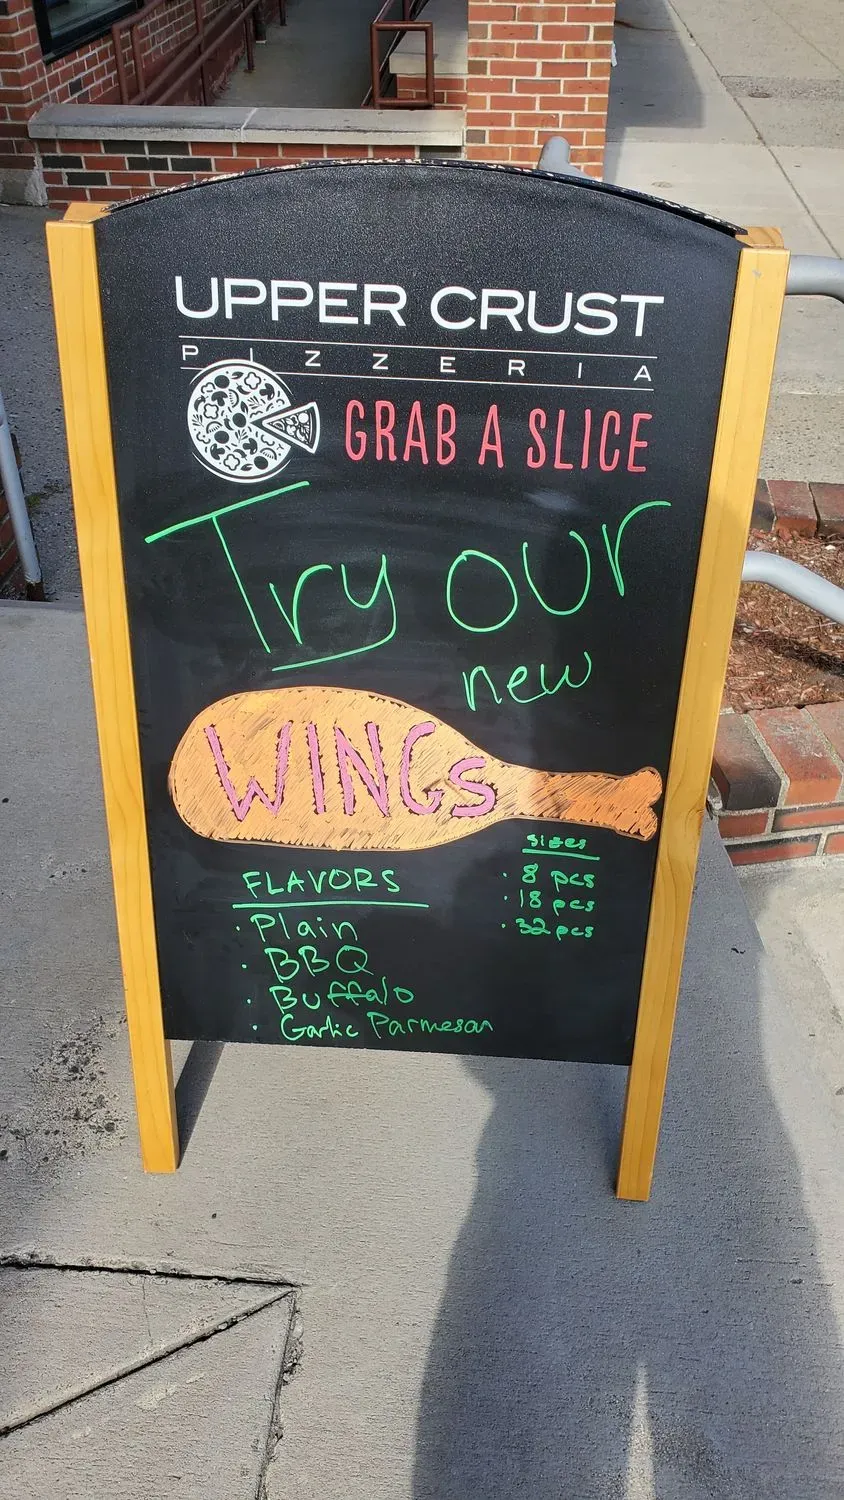 UPPER CRUST
PIZZERIA
GRAB A SLICE
Try our
new
WINGs
sizes
· 8 pcs
· 18 pcs
· 32 pcs
FLAVORS
· Plain
· BBQ
· Buffalo
· Garlic Parmesan